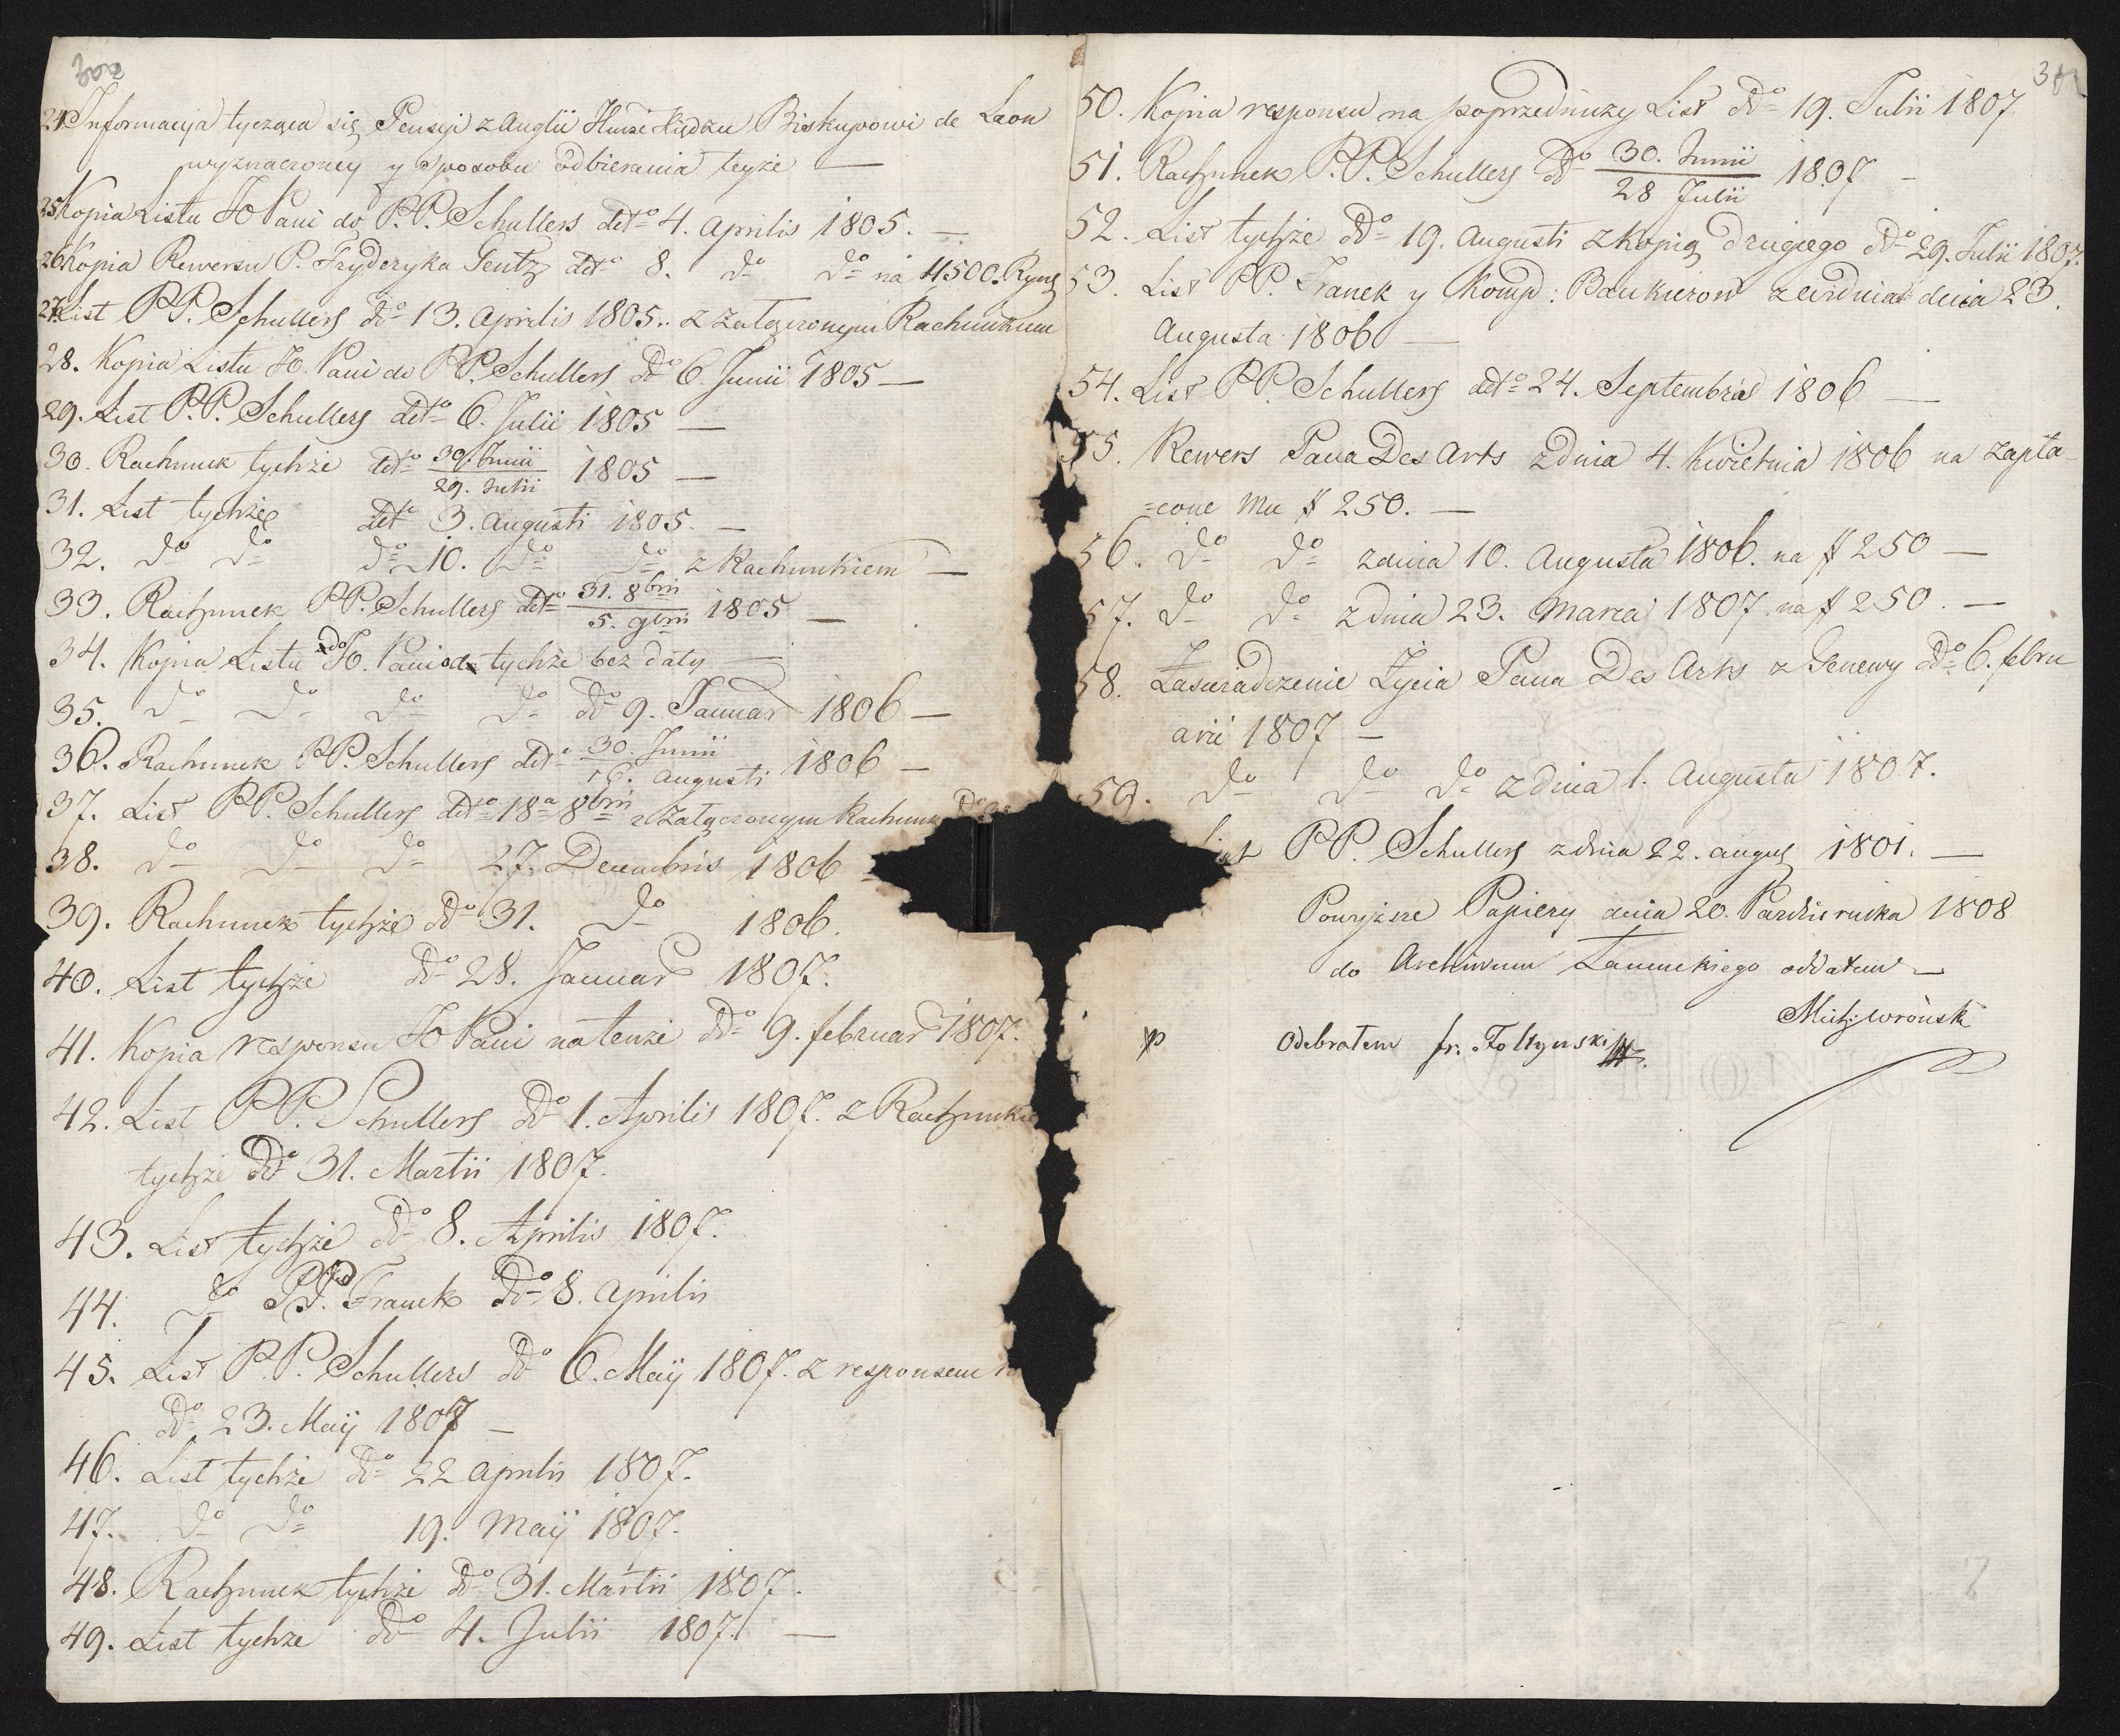 24. Informacyja tycząca się Pensyi z Anglii Xiędzu Biskupowi de Laon
wyznaczoney y sposobu odbierania teyże —
25. Kopia Listu JO Pani do P.P. Schullers detº 4. Aprilis 1805. —
26. Kopia Rewersu P. Fryderyka Gentz detº 8. dº dº na 4500. Ryns
27. List P.P. Schullers ddº 13. Aprilis 1805. z załączonym Rachunkiem
28. Kopia Listu JO. Pani do P.P. Schullers ddº 6. Junii 1805 —
29. List P.P. Schullers detº 6. Julii 1805 —
30. Rachunek tychże detº 30. Junii / 29. Julii 1805 —
31. List tychże detº 3. Augusti 1805. —
32. dº dº dº 10. dº dº z Rachunkiem —
33. Rachunek P.P. Schullers detº 31. 8bris / 5. 9bris 1805 —
34. Kopia Listu JO. Pani do tychże bez daty —
35. dº dº dº dº ddº 9. Januar 1806 —
36. Rachunek P.P. Schullers detº 30. Junii / 16. Augusti 1806 —
37. List P.P. Schullers detº 18ª 8bris z załączonym Rachunk
38. dº dº dº 27. Decembris 1806
39. Rachunek tychże ddº 31. dº 1806.
40. List tychże ddº 28. Januar 1807.
41. Kopia responsu JO Pani na tenże ddº 9. februar 1807.
42. List P.P. Schullers ddº 1. Aprilis 1807. z Rachunkie
tychże ddº 31. Martii 1807.
43. List tychże ddº 8. Aprilis 1807.
44. dº P.P. Franck ddº 8. Aprilis
45. List P.P. Schullers ddº 6. Maÿ 1807. z responsem
ddº 23. Maÿ 1807 —
46. List tychże ddº 22 Aprilis 1807.
47. dº dº 19. Maÿ 1807.
48. Rachunek tychże ddº 31. Martii 1807.
49. List tychże ddº 4. Julii 1807. —
50. Kopia responsu na poprzedniczy List ddº 19. Julii 1807.
51. Rachunek P.P. Schullers ddº 30. Junii / 28 Julii 1807 —
52. List tychże ddº 19. Augusti z kopią drugiego ddº 29. Julii 1807.
53. List P.P. Franck y Komp: Bankierow z Wiednia dnia 23.
Augusta 1806 —
54. List P.P. Schullers detº 24. Septembris 1806 —
55. Rewers Pana Des Arts z dnia 4. Kwietnia 1806 na zapła-
=cone mu # 250. —
56. dº dº z dnia 10. Augusta 1806. na # 250 —
57. dº dº z dnia 23. Marca 1807. na # 250. —
58. Zaświadczenie Życia Pana Des Arts z Genewy ddº 6. febru
arii 1807 —
59. dº dº dº z dnia 1. Augusta 1807.
List P.P. Schullers z dnia 22. augus 1801. —
Powyższe Papiery dnia 20. Pazdziernika 1808
do Archiwum Łancuckiego oddałem —
Mich: Wroński
Odebrałem fr. Żołtynski